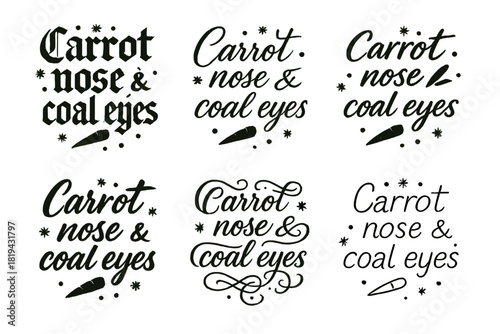 Carrot
nose &
coal eyes
Carrot
nose &
coal eyes
Carrot
nose
coal eyes
Carrot
nose &
coal eyes
Carrot
nose &
coal eyes
Carrot
nose &
coal eyes
Adobe Stock | #1819431797